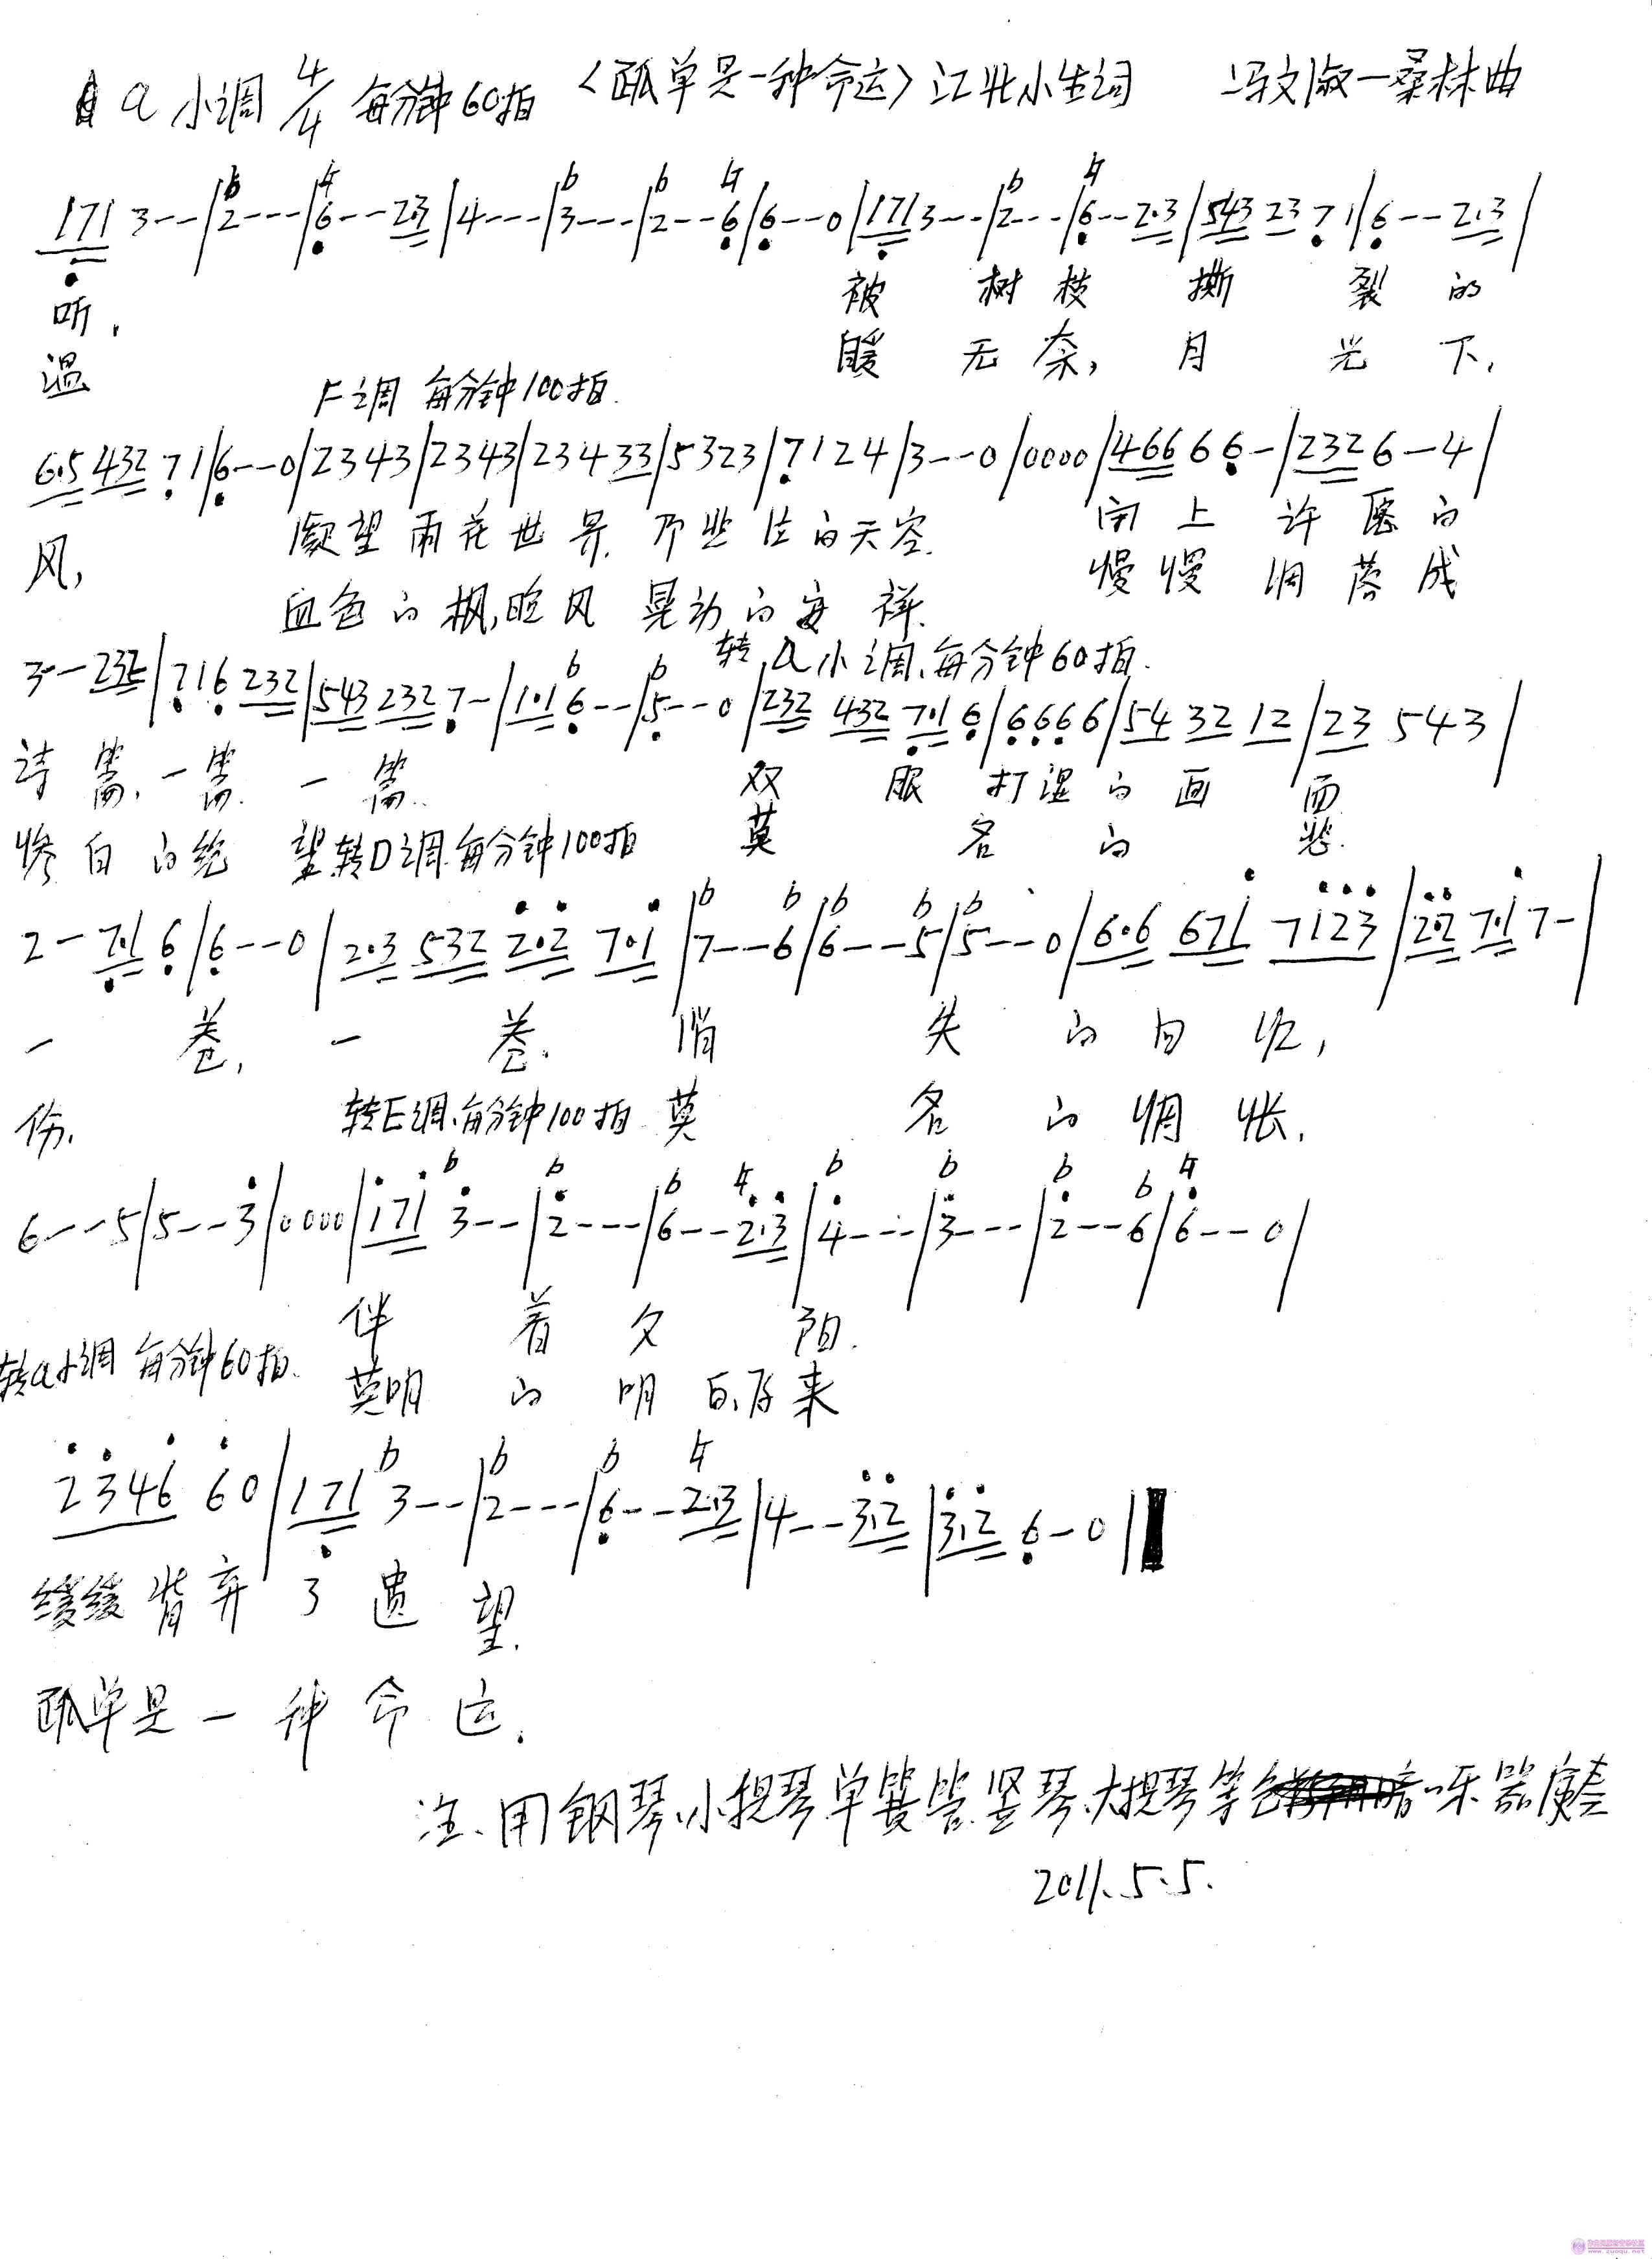 a 小调 4/4 每分钟60拍 〈孤单是一种命运〉江北小生词 冯文淑—桑林曲
171 3--|b2---|♮6--2·3|4---|b3---|b2--♮6|6--0|171 3--|b2---|♮6--2·3|543 23 71|6--2·3|
听, 被 树 枝 撕 裂 的
温 暖 无 奈, 月 光 下,
F调 每分钟100拍.
6·5 432 71|6--0|2343|2343|23433|5323|7124|3--0|0000|466 6 6-|232 6-4|
风, 凝望 雨花世界. 那些 的天空. 闭上 许愿的
血色的枫,晚风 晃动的安祥. 慢慢 凋落成
转a小调,每分钟60拍.
3-232|716 232|543 232 7-|1·1 b6--|b5--0|232 432 7·1 6|6666|54 32 12|23 543|
诗篇,一篇. 一篇. 双 眼 打湿的画 面
惨白的绝 望 转D调.每分钟100拍 莫 名 的 悲.
2-7·1 6|6--0|2·3 532 2·2 7·1|b7--b6|b6--b5|b5--0|6·6 671 7123|2·2 7·1 7-|
一 卷, 一 卷. 消 失 的 日 记,
伤. 转E调.每分钟100拍 莫 名 的 惆 怅.
6--5|5--3|0000|171 b3--|b2---|b6--♮2·3|b4---|b3---|b2--b6|♮6--0|
伴 着 夕 阳.
转a小调 每分钟60拍. 莫明 的 明 白,后来
2346 60|171 b3--|b2---|b6--♮2·3|4--3·2|3·2 6-0||
缓缓背弃了遗 望.
孤单是一种命运.
注、用钢琴、小提琴单簧管、竖琴、大提琴等 乐器演奏
2011.5.5.
www.zuoqu.net